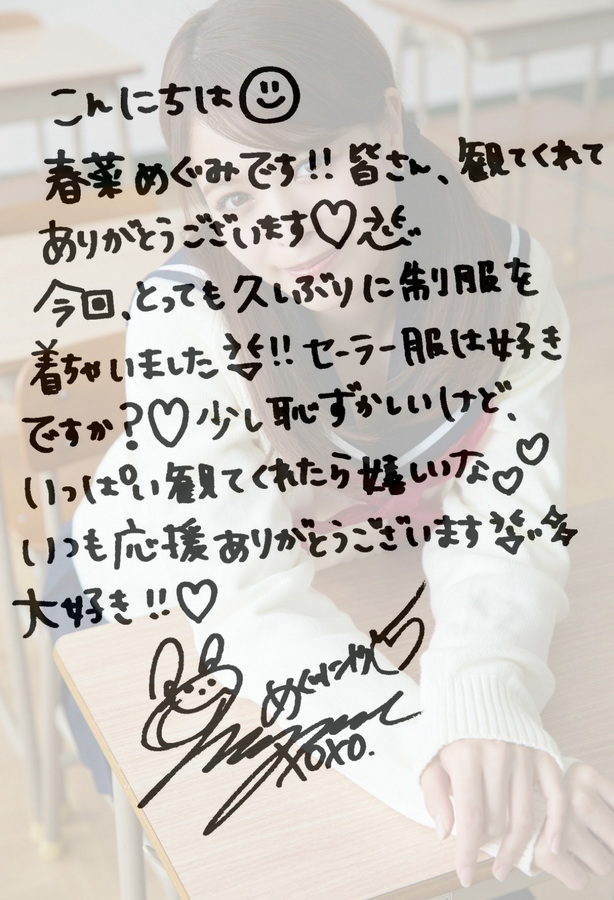 こんにちは☺
春菜めぐみです!! 皆さん、観てくれて
ありがとうございます♡
今回、とっても久しぶりに制服を
着ちゃいました!! セーラー服は好き
ですか?♡少し恥ずかしいけど、
いっぱい観てくれたら嬉しいな♡♡
いつも応援ありがとうございます
大好き!!♡
xoxo.